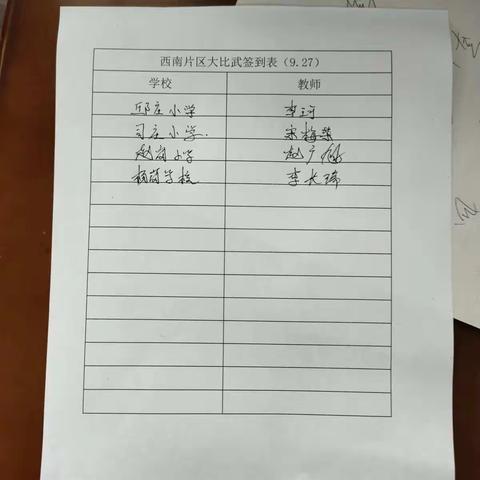 西南片区大比武签到表（9.27）
学校 教师
邱庄小学 李珂
司庄小学. 宋梅荣
赵岗小学 赵广
杨岗学校 李长瑞